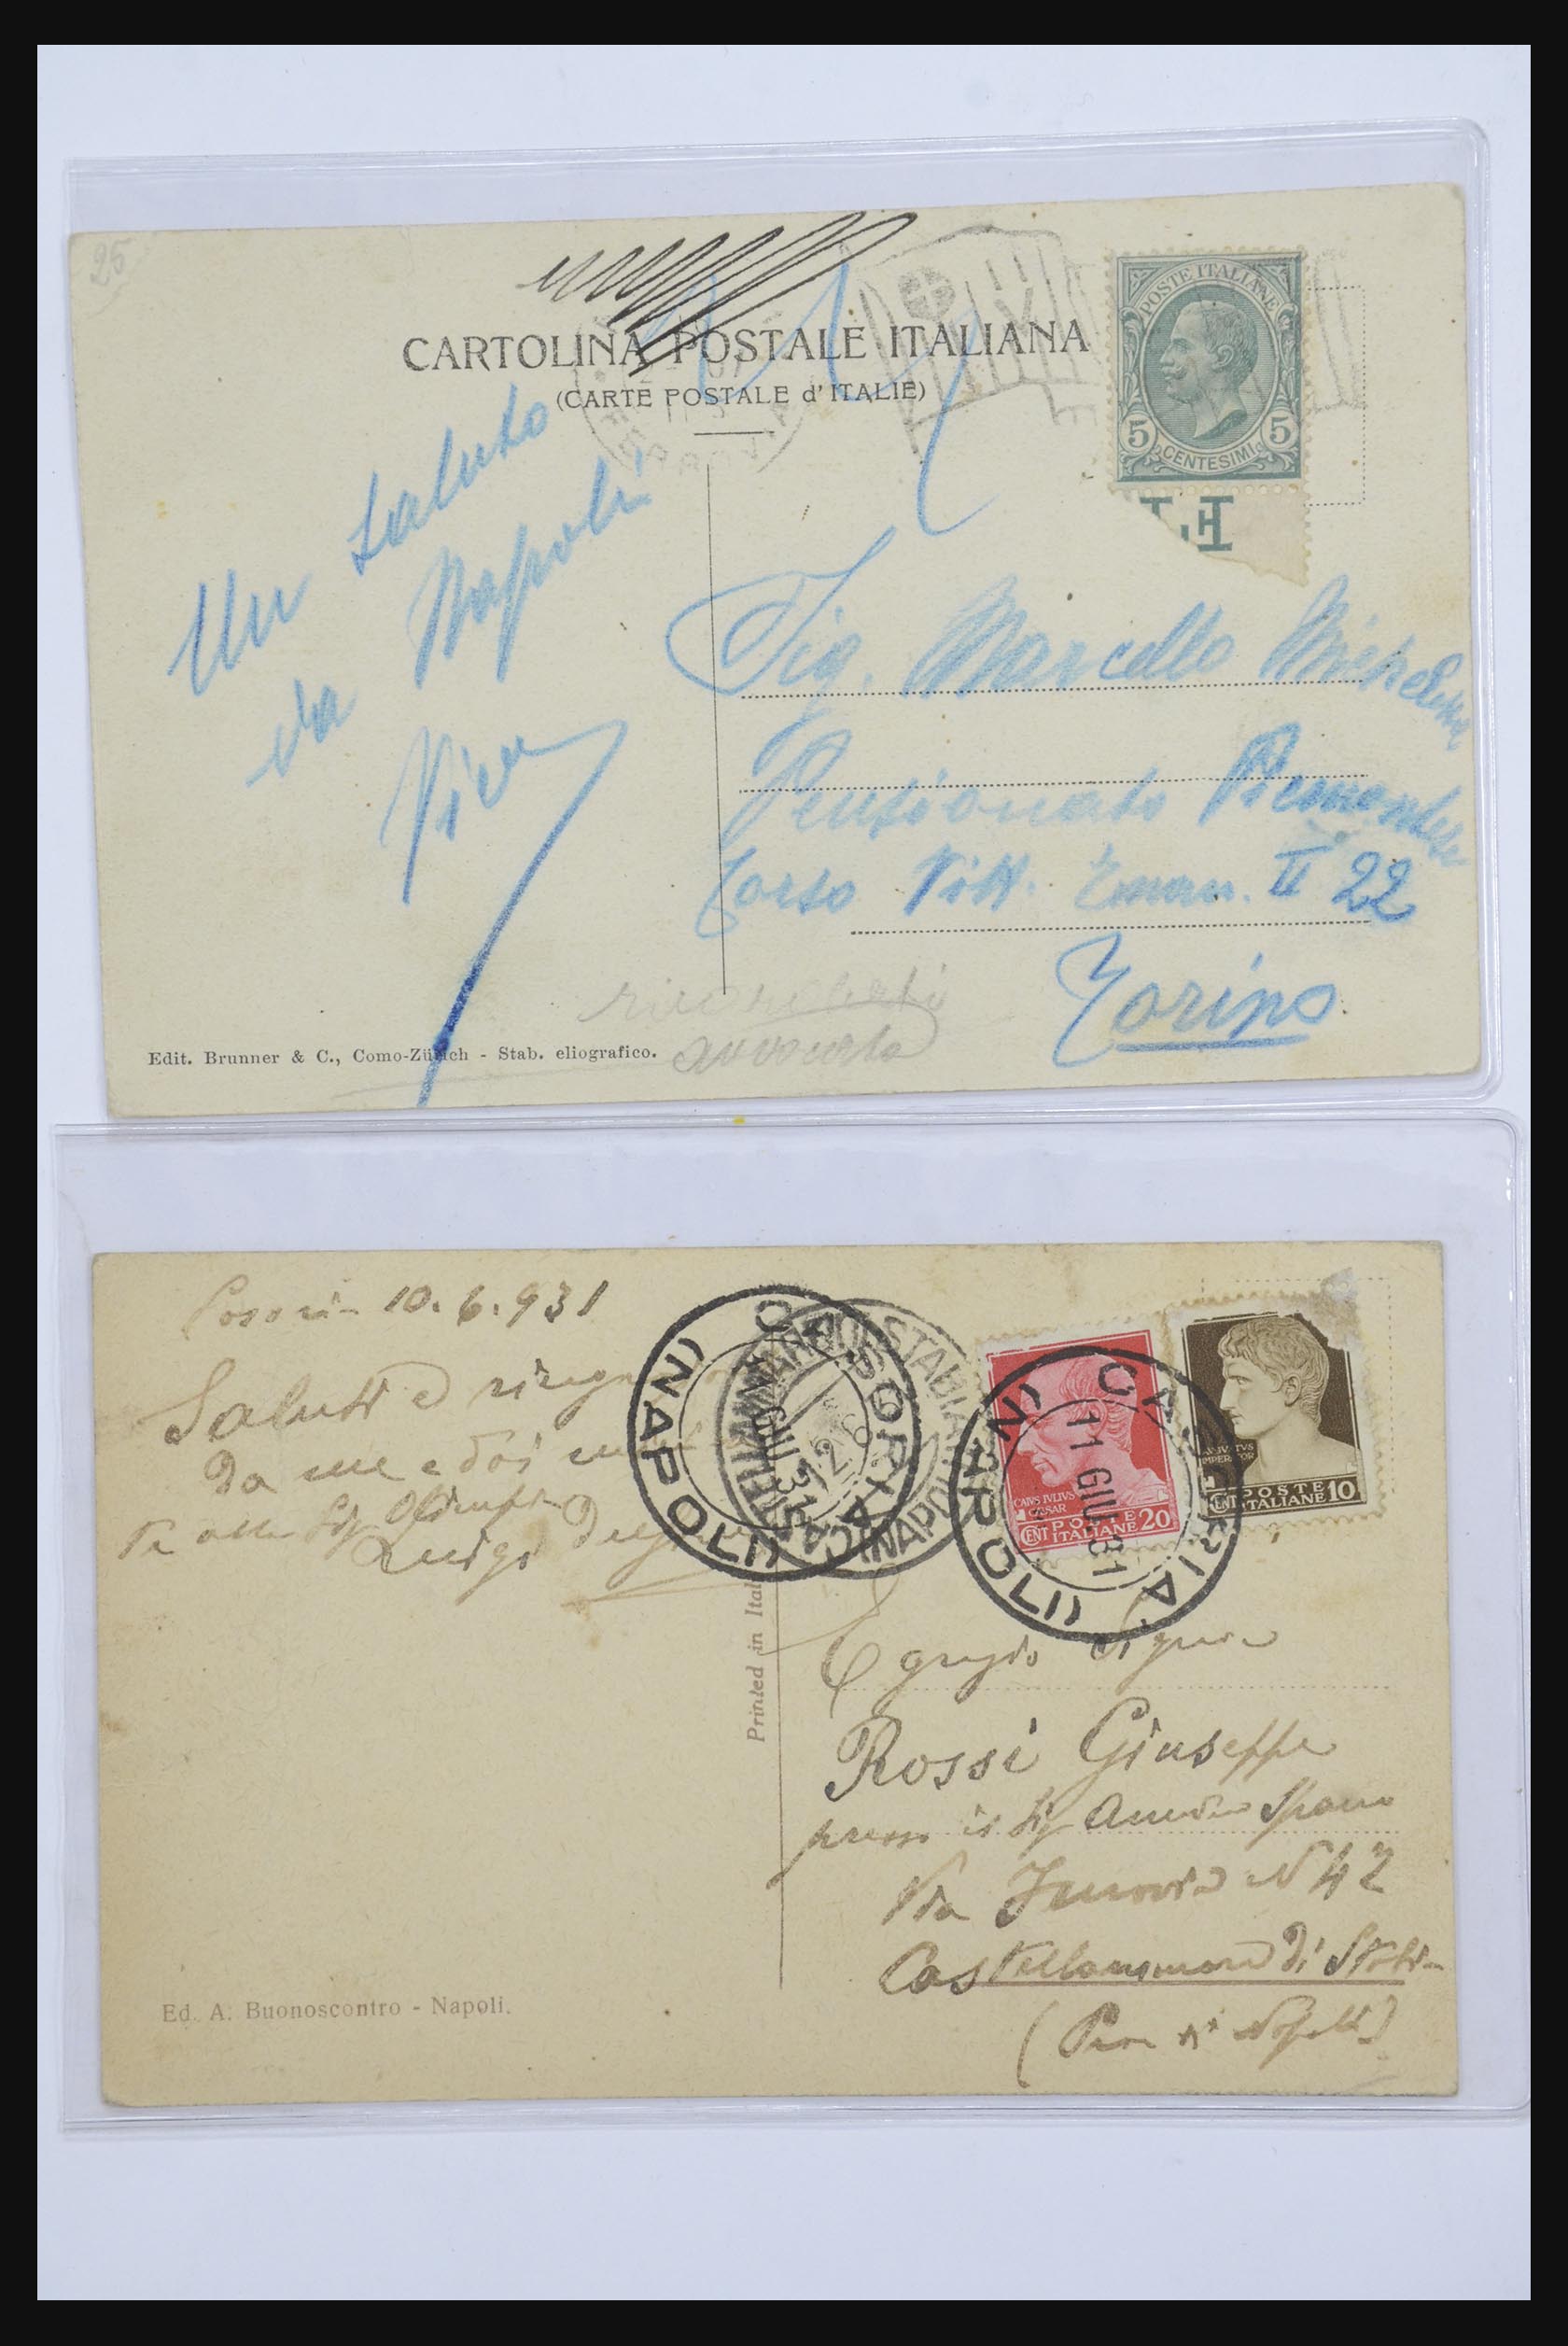 25
CARTOLINA POSTALE ITALIANA
(CARTE POSTALE d'ITALIE)
POSTE ITALIANE
5 5
CENTESIMI
Un saluto
da Napoli
Sig. Marcello
Pensionato Piemontese
Corso Vitt. Eman. II 22
Torino
avvocato
Edit. Brunner & C., Como-Zürich - Stab. eliografico.
10.6.931
Saluti e
da me e
Luigi
CAPORIA (NAPOLI)
GIU 31
CASTELLAMMARE DI STABIA (NAPOLI)
CAIVS IVLIVS
CAESAR
POSTE
CENT ITALIANE 20
IMPERATOR
POSTE
CENT ITALIANE 10
(NAPOLI)
11 GIU. 31
Printed in Ital
Egregio Signore
Rossi Giuseppe
presso il Sig Amedeo Spano
Via N 42
Castellammare di Stabia
Napoli)
Ed. A. Buonoscontro - Napoli.